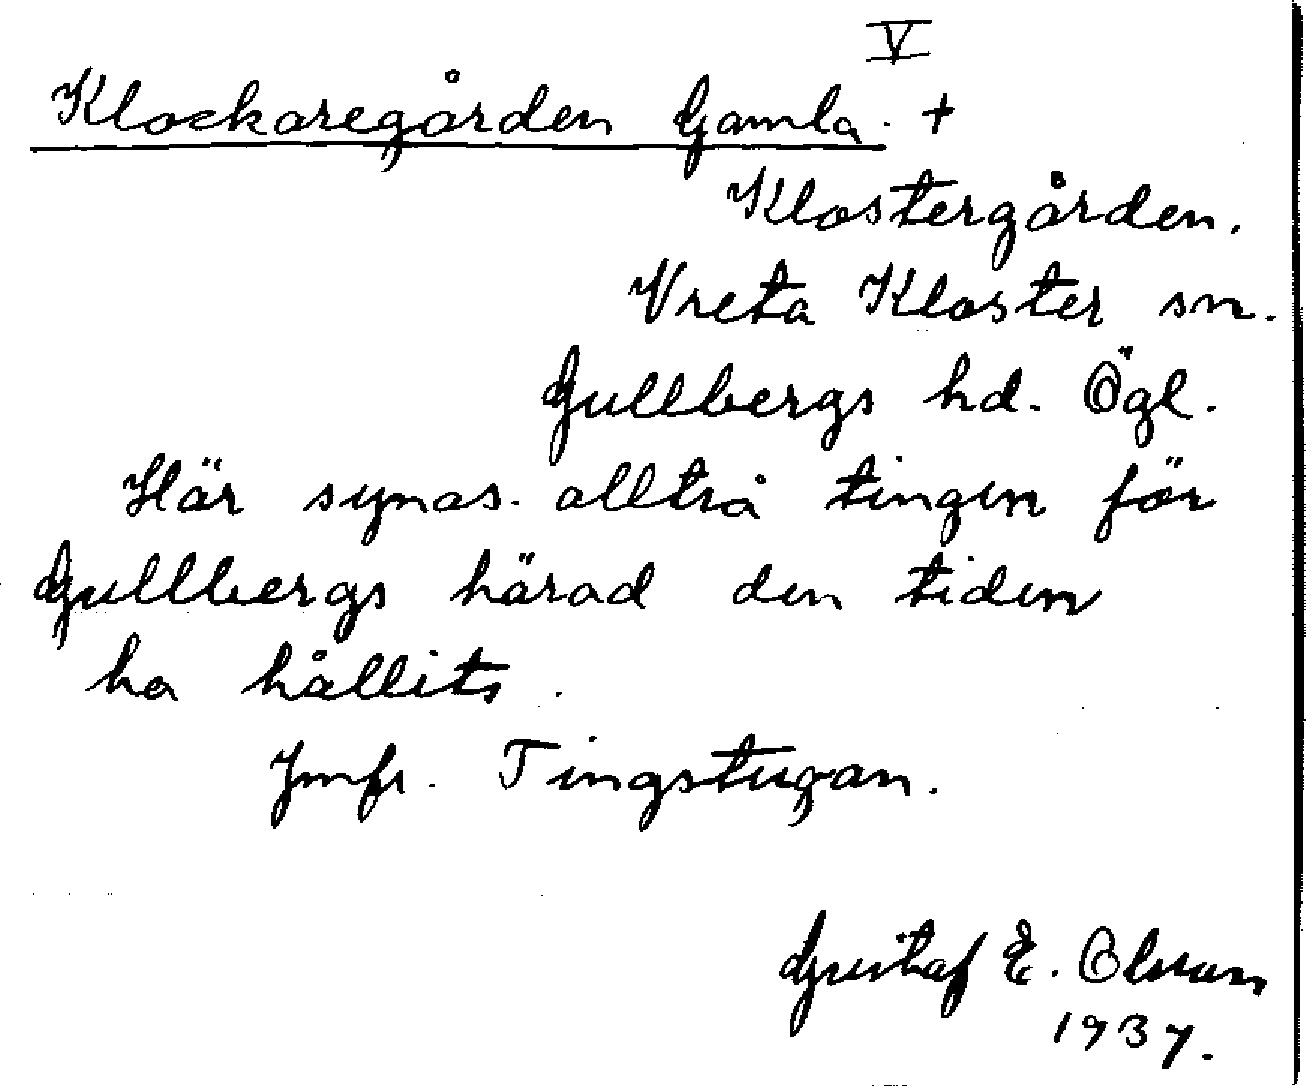 V
Klockaregården Gamla. +
Klostergården.
Vreta Kloster sn.
Gullbergs hd. Ögl.
Här synas. alltså tingen för
Gullbergs härad den tiden
ha hållits.
Jmfr. Tingstugan.
Gustaf E. Olsson
1937.